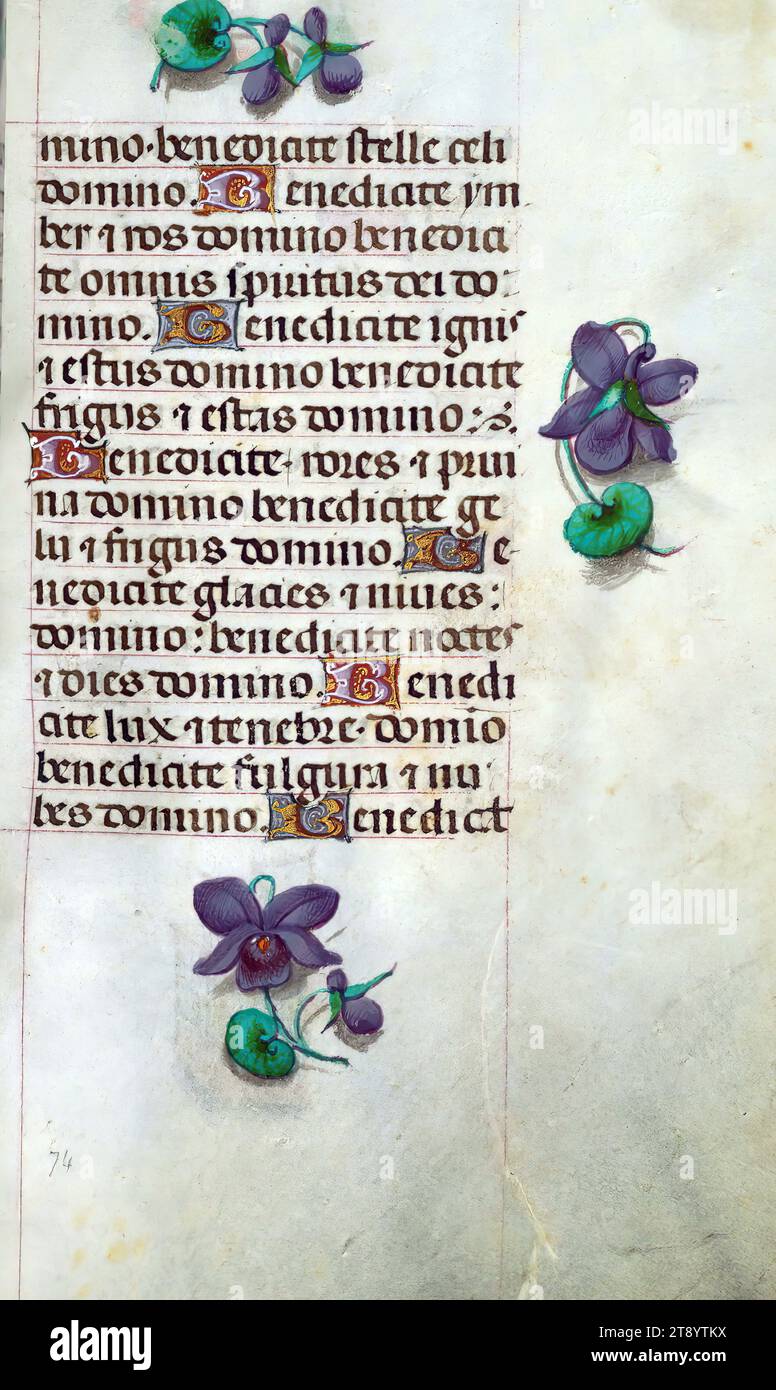 mino·benedicite stelle celi
domino. Benedicite ym
ber ⁊ ros domino benedici
te omnis spiritus dei do
mino. Benedicite ignis
⁊ estus domino benedicite
frigus ⁊ estas domino:
Benedicite rores ⁊ prui
na domino benedicite ge
lu ⁊ frigus domino. Be
nedicite glacies ⁊ niues:
domino: benedicite noctes
⁊ dies domino. Benedi
cite lux ⁊ tenebre· domio
benedicite fulgura ⁊ nu
bes domino. Benedict
74
alamy
Image ID: 2T8YTKX
www.alamy.com